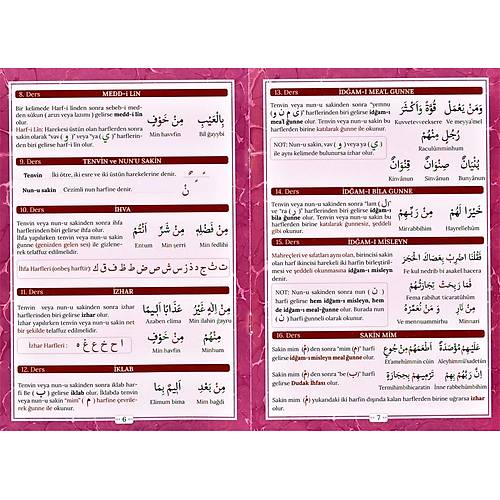 8. Ders
MEDD-i LİN
Bir kelimede Harf-i linden sonra sebeb-i med-
den sükun ( arızı veya lazımı ) gelirse medd-i lin
olur.
Harf-i Lin: Harekesi üstün olan harflerden sonra
sakin olarak "vav ( و ) "veya "ya ( ي )" harflerin-
den biri gelirse harf-i lin olur.
بِالْغَيْبِ
مِنْ خَوْفٍ
Bil ğaybi
Min havfin
9. Ders
TENVİN ve NUN'U SAKİN
Tenvin
İki ötre, iki esre ve iki üstün harekelerine denir.
Nun-u sakin
Cezimli nun harfine denir.
10. Ders
İHVA
Tenvin veya nun-u sakinden sonra ihfa
harflerinden biri gelirse ihfa olur.
İhfa yapılırken tenvin veya nun-u sakin
gunne (genizden gelen ses) ile gizlene-
rek telaffuz edilmelidir.
اَنْتُمْ
مِنْ شَرِّ
مِنْ فَضْلِهِ
Entum
Min şerri
Min fedlihi
İhfa Harfleri (onbeş harftir)
ت ث ج د ذ ز س ش ص ض ط ظ ف ق ك
11. Ders
İZHAR
Tenvin veya nun-u sakinden sonra izhar
harflerinden biri gelirse izhar olur.
İzhar yapılırken tenvin veya nun-u sakin net
bir şekilde telaffuz edilmelidir.
عَذَابًا اَلِيمًا
مِنْ اِلٰهٍ غَيْرُ
Azaben elima
Min ilahin ğayru
İzhar Harfleri :
ا ح خ ع غ ه
مِنْ خَوْفٍ
مِنْهُمْ
Min havfin
Minhum
12. Ders
İKLAB
Tenvin veya nun-u sakinden sonra iklab har-
fi Be ( ب ) gelirse iklab olur. İklabda tenvin
veya nun-u sakin "mim" ( م ) harfine çevrile-
rek ğunne ile okunur.
اَلِيمٌ بِمَا
مِنْ بَعْدِ
Elimum bima
Mim bağdi
6
13. Ders
İDĞAM-I MEA'L GUNNE
Tenvin veya nun-u sakinden sonra "yemnu
( ي م ن و )" harflerinden biri gelirse idğam-ı
mea'l ğunne olur. Tenvin veya nun-u sakin bu
harflerden birine katılarak ğunne ile okunur.
قُوَّةً وَاَكْثَرَ
وَمَنْ يَعْمَلْ
Kuvvetevveeksera
Ve meyya'mel
رَجُلٍ مِنْهُمْ
Raculimminhum
NOT: Nun-u sakin, vav ( و ) veya ya ( ي )
ile aynı kelimede bulunursa izhar olur.
قِنْوَانٌ
صِنْوَانٌ
بُنْيَانٌ
Kinvânun
Sinvânun
Bunyânun
14. Ders
İDĞAM-I BİLA GUNNE
Tenvin veya nun-u sakinden sonra "lam ( ل )"
ve "ra ( ر )" harflerinden biri gelirse idğam-ı
bila ğunne olur. Tenvin veya nun-u sakin bu
harflerden birine katılarak ğunnesiz, şeddeli
gibi okunur.
مِنْ رَبِّهِمْ
خَيْرًا لَهُمْ
Mir rabbihim
Hayrellehum
15. Ders
İDĞAM-I MİSLEYN
Mahreçleri ve sıfatları aynı olan, birincisi sakin
olan harf ikincisi harekeli iki harfin birleştiril-
mesi ve şeddeli okunmasına idğam-ı misleyn
denir.
فَقُلْنَا اضْرِبْ بِعَصَاكَ الْحَجَرَ
Fe kul nedrib bi asakel hacera
فَمَا رَبِحَتْ تِجَارَتُهُمْ
NOT: Nun-u sakinden sonra ( ن )
harfi gelirse hem idğam-ı misleyn,
hem de idğam-ı mea'l ğunne olur. Burada nun
( ن ) harfi ğunneli olarak okunur.
Ve mennuammirhu
Min nari
16. Ders
SAKİN MİM
Sakin mim ( مْ ) den sonra "mim ( م )" harfi
gelirse idğam-ı misleyn meal'ğunne olur.
اَطْعَمَهُمْ مِنْ جُوعٍ
عَلَيْهِمْ مُؤْصَدَةٌ
Et'amehümmin cûin
Aleyhimmü'sadeh
Sakin mim ( مْ ) den sonra "be ( ب )" harfi
gelirse Dudak İhfası olur.
تَرْمِيهِمْ بِحِجَارَةٍ
اِنَّ رَبَّهُمْ بِهِمْ
Termîhimbihicaratin
İnne rabbehümbihim
Sakin mim ( مْ ) yukarıdaki iki harfin dışında kalan harflerden birine uğrarsa izhar
olur.
7